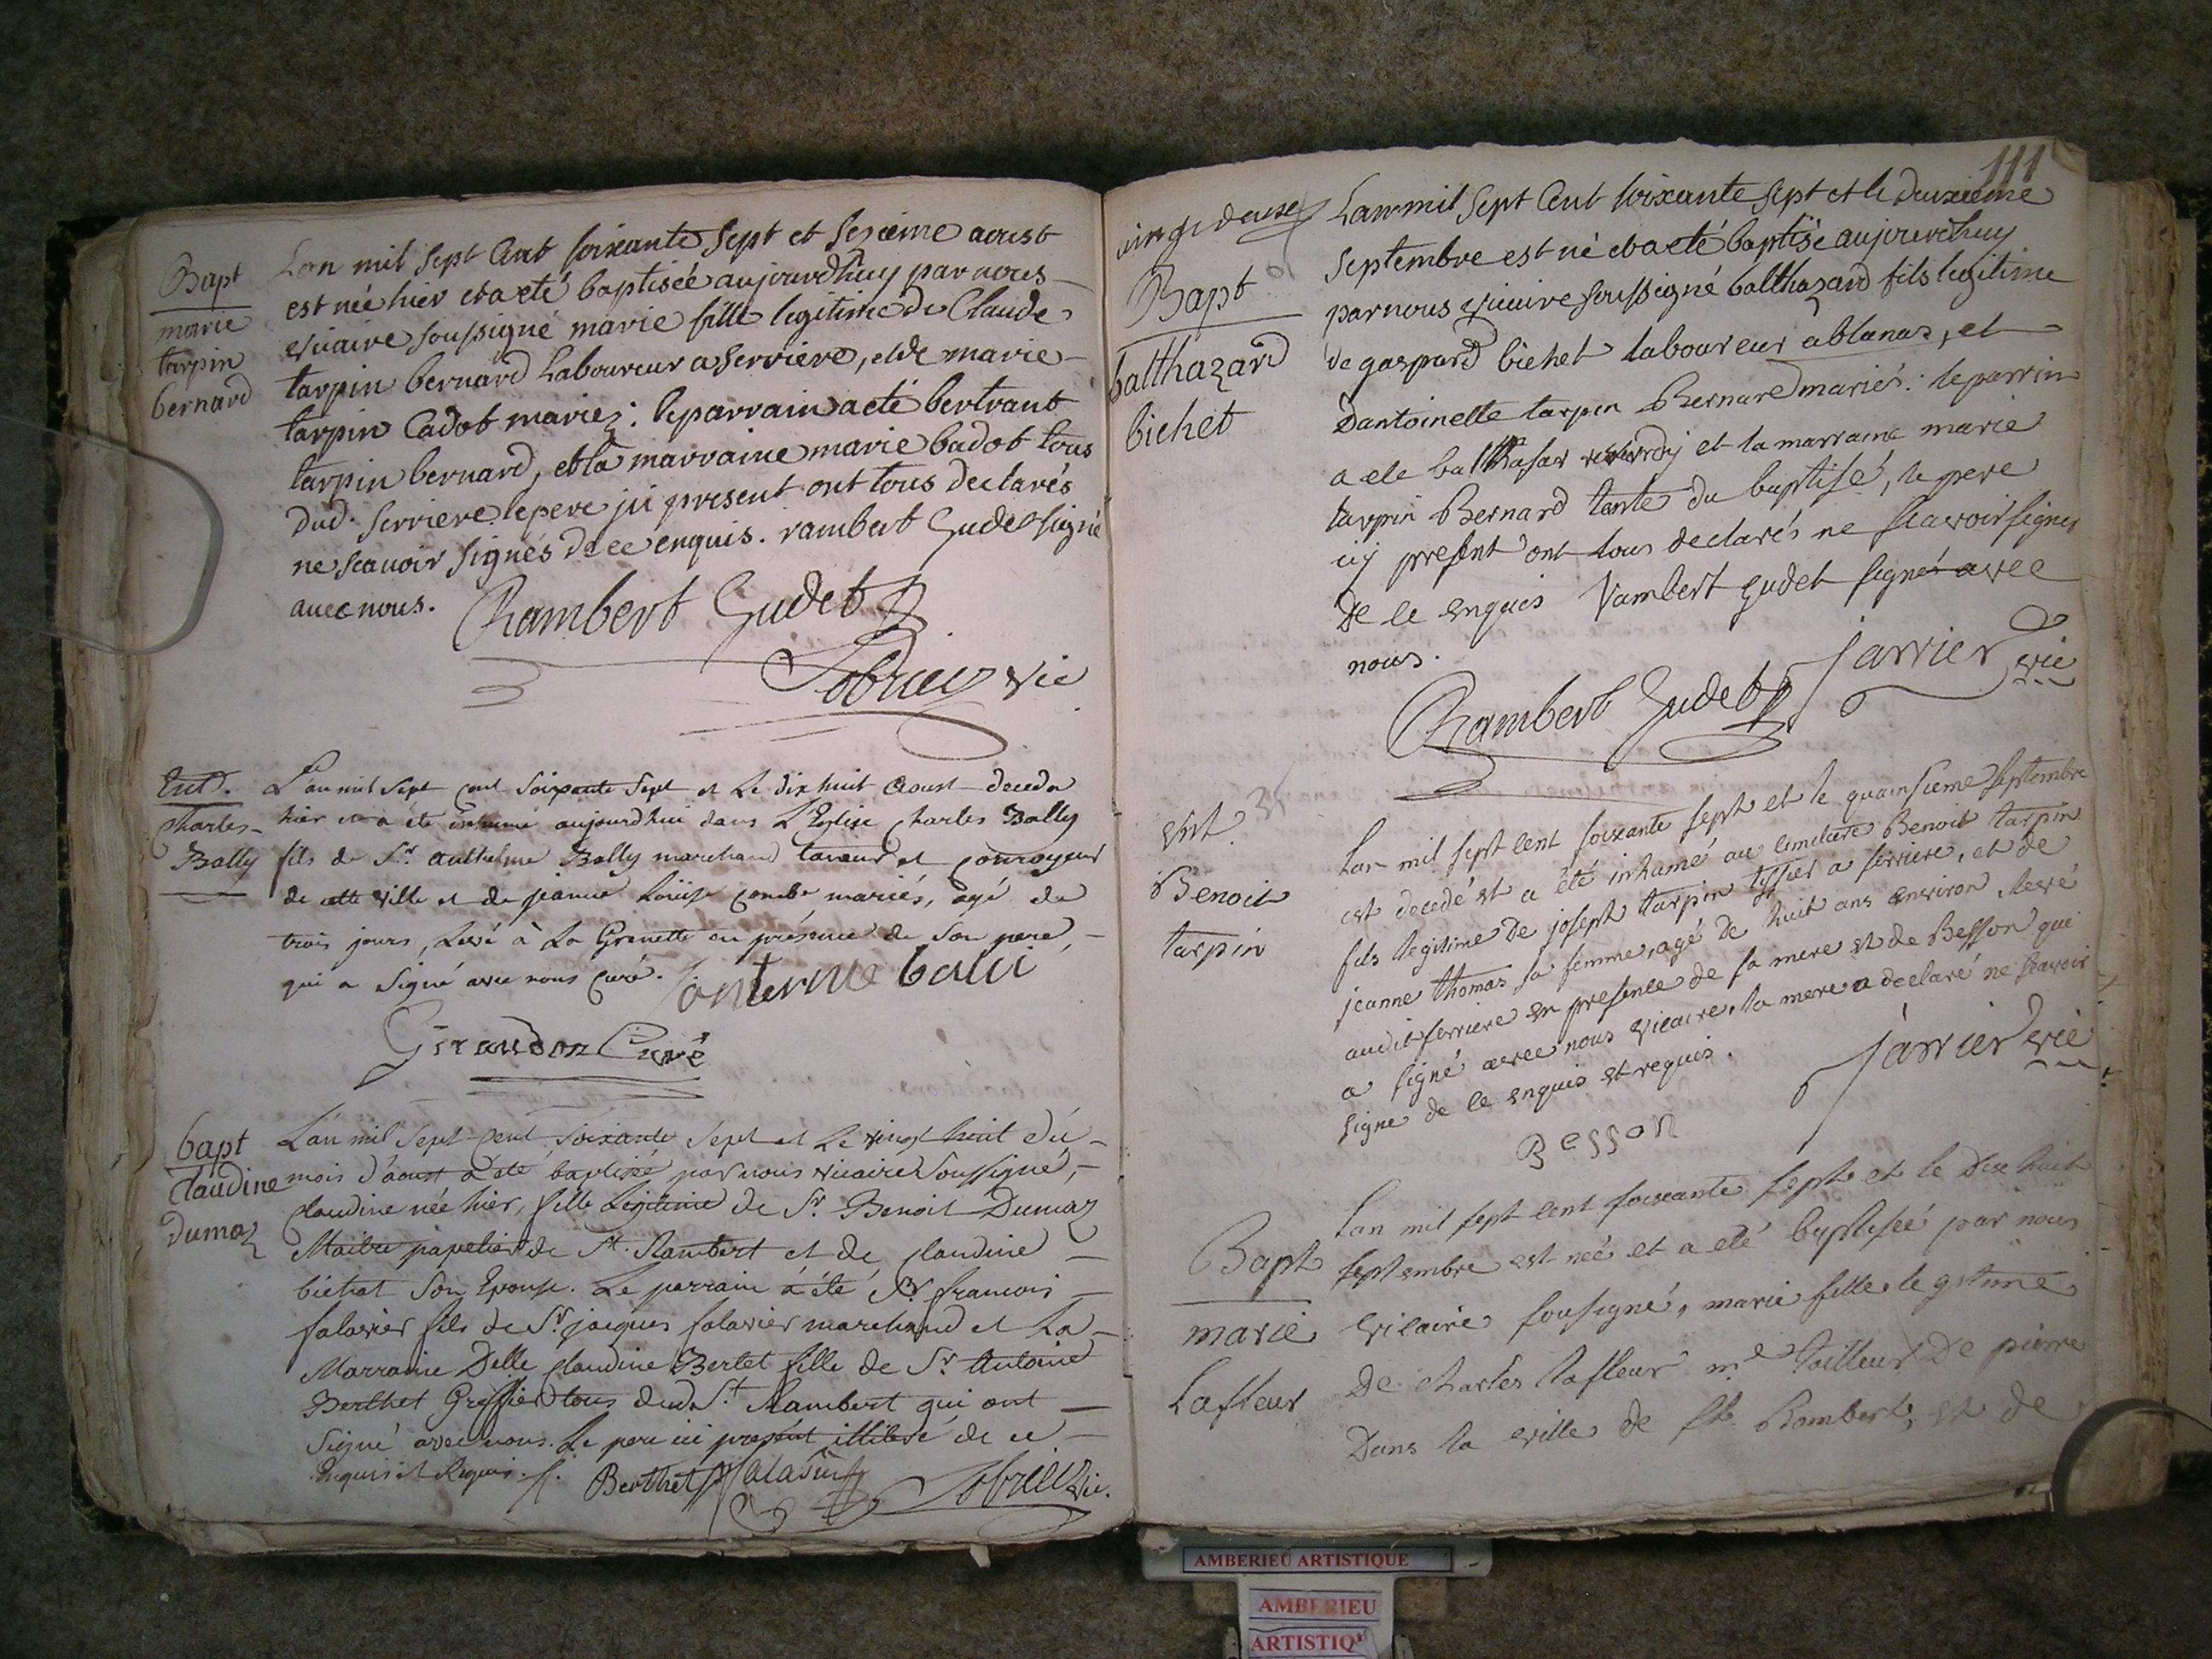 Bapt
marie
tarpin
bernard
Lan mil sept Cent soixante sept et sezieme aoust
est née hier et a eté baptisée aujourdhuy par nous
vicaire soussigné marie fille legitime de Claude
tarpin bernard Laboureur a Serriere, et de marie
tarpin Cadot mariez: le parrain a eté bertrant
tarpin bernard, et la marraine marie badot tous
dud. serriere le pere ici present ont tous declarés
ne scavoir signés de ce enquis. rambert Gudet signé
avec nous.
Rambert Gudet
vic
Ent.
Charles
Bally
L'an mil sept cent soixante sept et Le dix huit Aoust deceda
hier et a été inhumé aujourdhui dans L'Eglise Charles Bally
fils de Sr. anthelme Bally marchand taneur et conroyeur
de cette ville et de jeanne Louise combe mariés, agé de
trois jours, Levé à La Grenette en présence de son pere
qui a signé avec nous curé.
anterme balli
Girandon Curé
bapt
Claudine
Dumaz
L'an mil sept Cent soixante sept et le vingt huit du
mois d'aoust a été baptisée par nous vicaire soussigné,
claudine née hier, fille Legitime de Sr. Benoit Dumaz
Maitre papetier de St. Rambert et de claudine
biétrat son Epouse. Le parrain a été Sr. francois
salavier fils de Sr. jacques salavier marchand et La
Marraine Delle claudine Bertet fille de Sr Antoine
Berthet Greffier tous dud. St. Rambert qui ont
signé avec nous. Le pere ici présent illiteré de ce
Enquis et Requis. Berthet
vic.
111
vingt deuse
Bapt
balthazard
bichet
Lan mil sept Cent soixante sept et le deuxieme
septembre est né et a eté baptisé aujourdhuy
par nous vicaire soussigné balthazard fils legitime
de gaspard bichet laboureur a blanaz, et
Dantoinette tarpin Bernard mariés: le parrin
a ete balthasar et la marraine marie
tarpin Bernard tante du baptisé, le pere
icy present ont tous declarés ne scavoir signer
De ce enquis Rambert gudet signé avec
nous.
Rambert Gudet
jarrier vic
Ent. 35
Benoit
tarpin
Lan mil sept cent soixante sept et le quainsieme septembre
est decedé et a été inhumé au cimetiere Benoit tarpin
fils legitime de joseph tarpin tissier a serriere, et de
jeanne thomas sa femme, agé de huit ans environ, levé
audit serriere en presence de sa mere et de Besson qui
a signé avec nous vicaire. la mere a declaré ne scavoir
signe de ce enquis et requis.
jarrier vic
Besson
Bapt
marie
Lafleur
Lan mil sept cent soixante sept et le Dix huit
septembre est neé et a eté baptisée par nous
vicaire sousigné, marie fille legitime
De charles lafleur me tailleur De pierre
Dans la ville de st. Rambert, et de
AMBERIEU ARTISTIQUE
AMBERIEU
ARTISTIQ